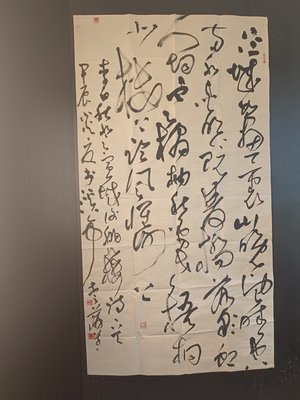 江城如画里山晚望晴空
两水夹明镜双桥落彩虹
人烟寒橘柚秋色老梧桐
北楼上临风怀谢公
李白秋登宣城谢朓北楼诗一首
甲辰炎夏书于